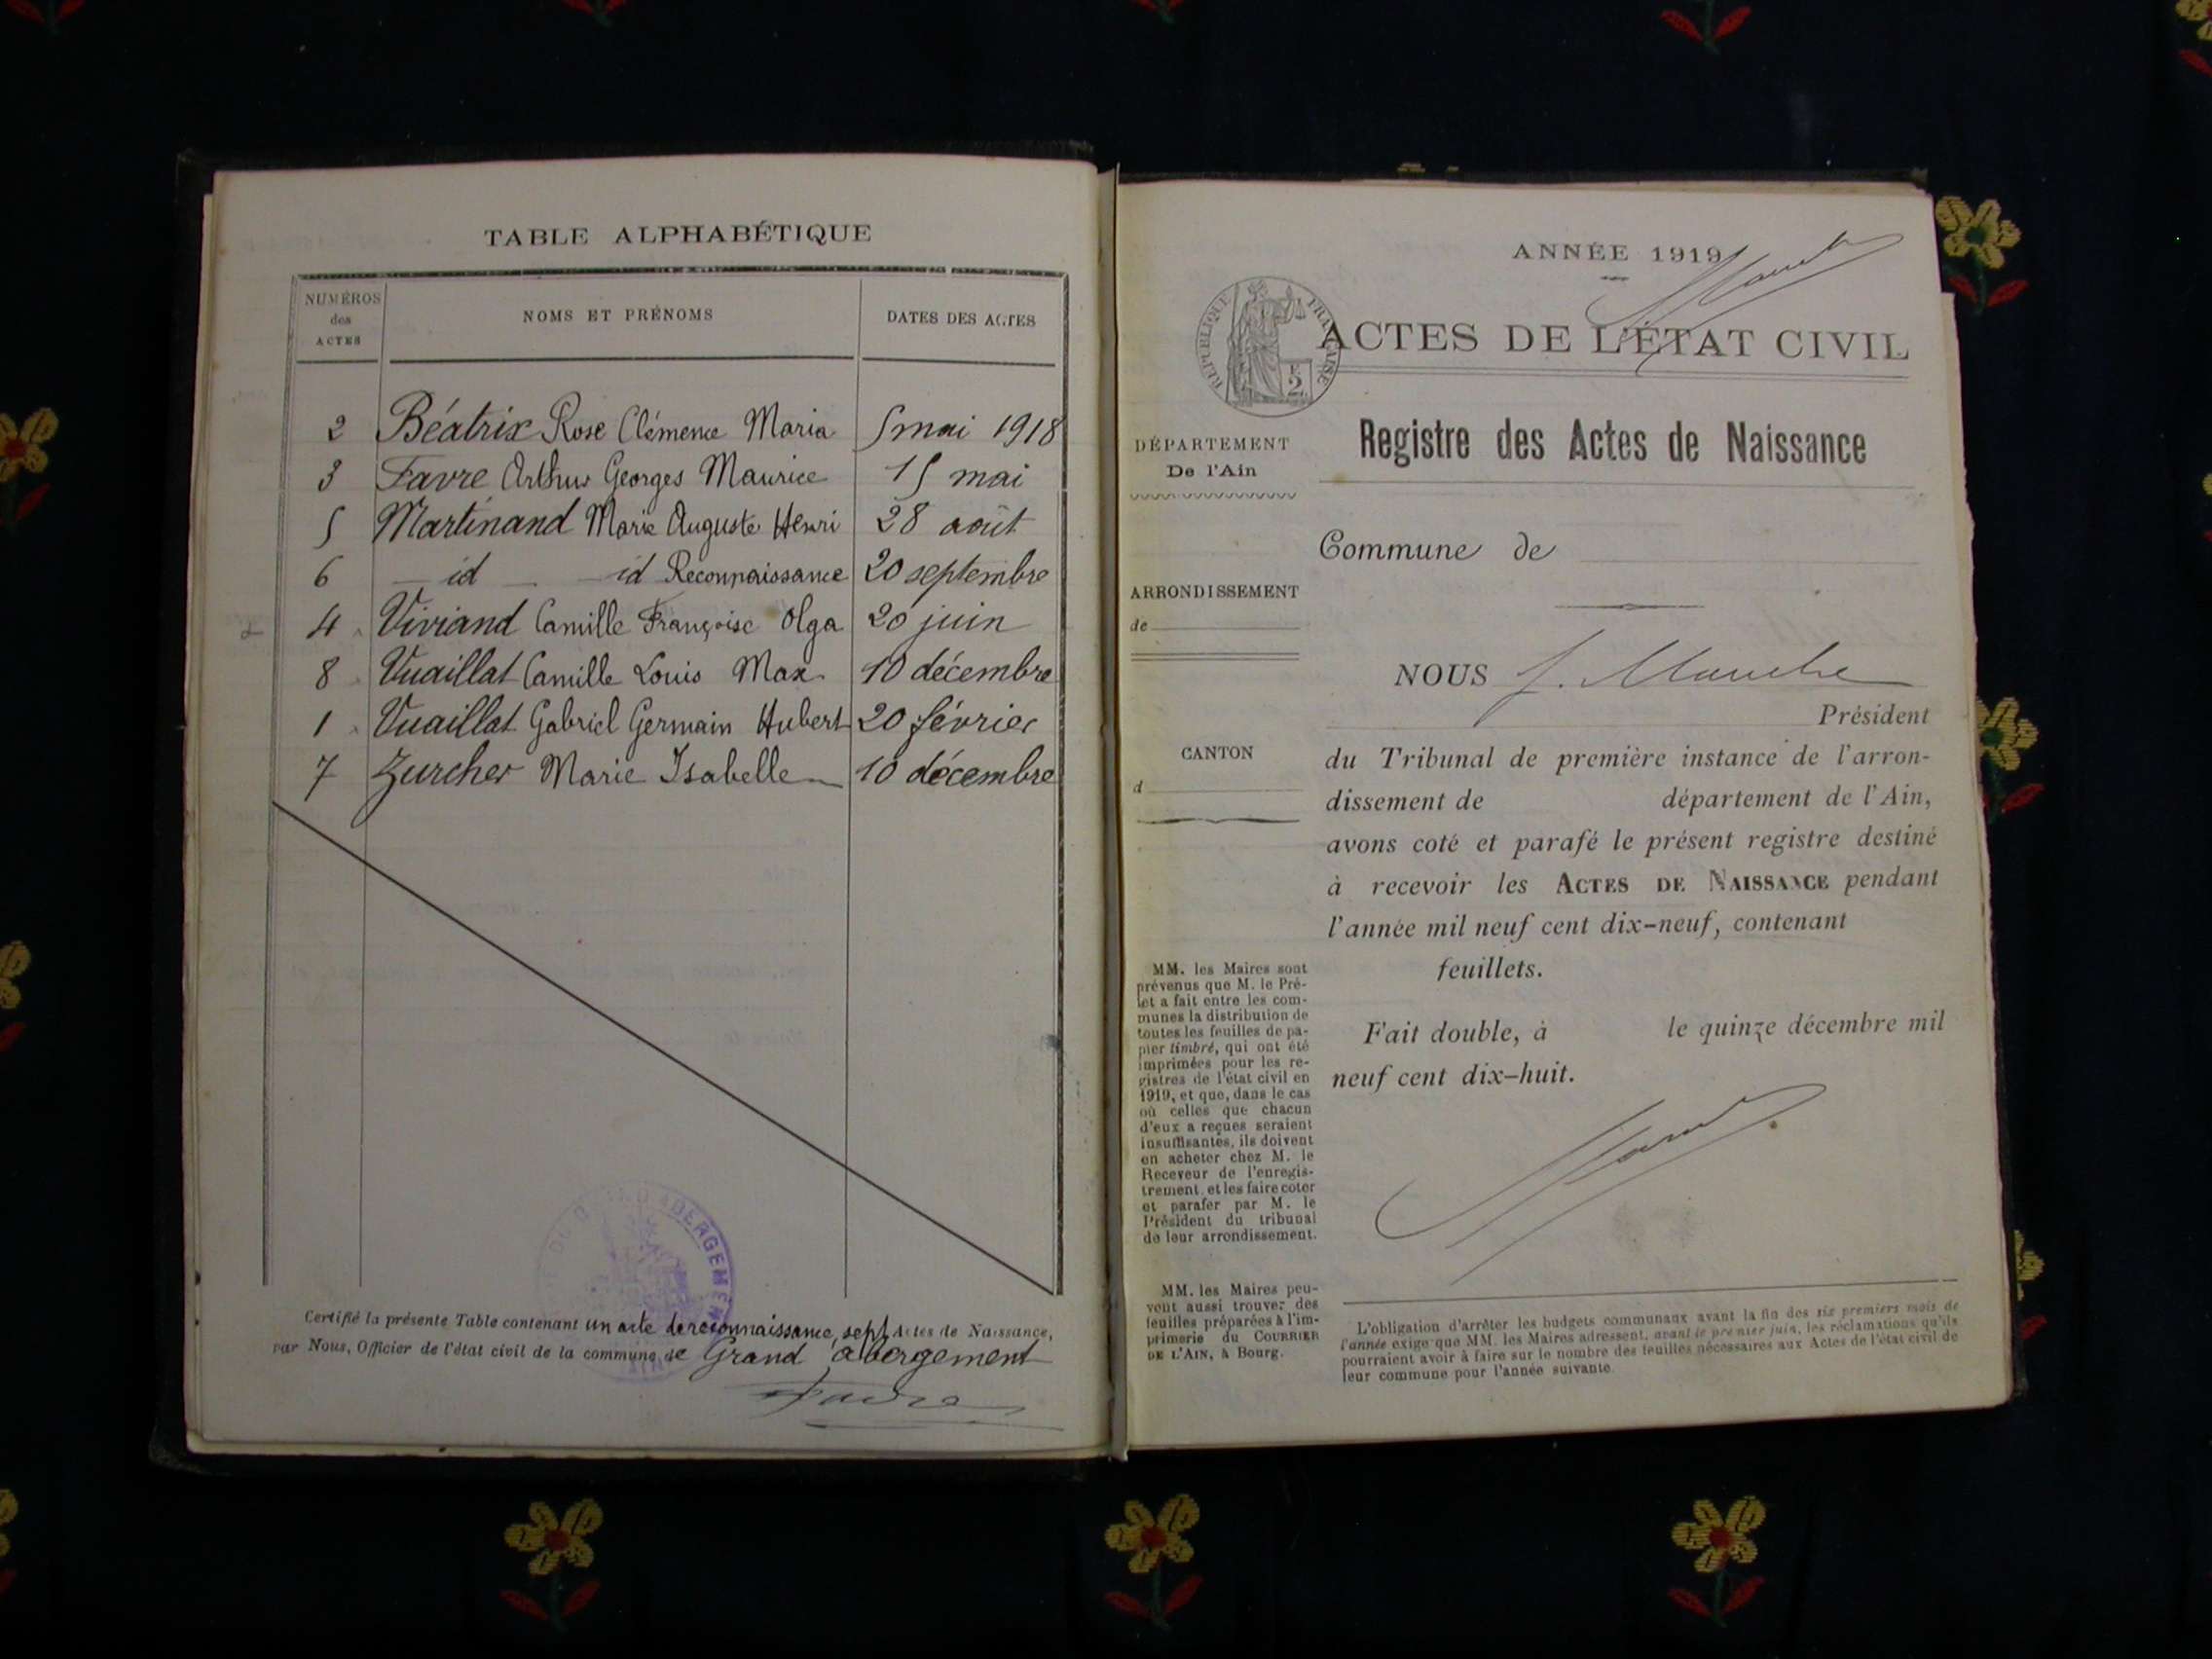 TABLE ALPHABÉTIQUE
NUMÉROS
des
ACTES
NOMS ET PRÉNOMS
DATES DES ACTES
2 Béatrix Rose Clémence Maria 5 mai 1918
3 Favre Arthur Georges Maurice 15 mai
5 Martinand Marie Auguste Henri 28 août
6 id id Reconnaissance 20 septembre
4 Viviand Camille Françoise Olga 20 juin
8 Vuaillat Camille Louis Max 10 décembre
1 Vuaillat Gabriel Germain Hubert 20 février
7 Zurcher Marie Isabelle 10 décembre
Certifié la présente Table contenant un acte de reconnaissance, sept Actes de Naissance,
par Nous, Officier de l'état civil de la commune de Grand abergement
Favre
ANNÉE 1919
RÉPUBLIQUE FRANÇAISE
ACTES DE L'ÉTAT CIVIL
Registre des Actes de Naissance
DÉPARTEMENT
De l'Ain
Commune de
ARRONDISSEMENT
de
CANTON
d
NOUS
Président
du Tribunal de première instance de l'arron-
dissement de département de l'Ain,
avons coté et parafé le présent registre destiné
à recevoir les ACTES DE NAISSANCE pendant
l'année mil neuf cent dix-neuf, contenant
feuillets.
Fait double, à le quinze décembre mil
neuf cent dix-huit.
MM. les Maires sont
prévenus que M. le Pré-
fet a fait entre les com-
munes la distribution de
toutes les feuilles de pa-
pier timbré, qui ont été
imprimées pour les re-
gistres de l'état civil en
1919, et que, dans le cas
où celles que chacun
d'eux a reçues seraient
insuffisantes, ils doivent
en acheter chez M. le
Receveur de l'enregis-
trement et les faire coter
et parafer par M. le
Président du tribunal
de leur arrondissement.
MM. les Maires peu-
vent aussi trouver des
feuilles préparées à l'im-
primerie du COURRIER
DE L'AIN, à Bourg.
L'obligation d'arrêter les budgets communaux avant la fin des six premiers mois de
l'année exige que MM. les Maires adressent, avant le premier juin, les réclamations qu'ils
pourraient avoir à faire sur le nombre des feuilles nécessaires aux Actes de l'état civil de
leur commune pour l'année suivante.